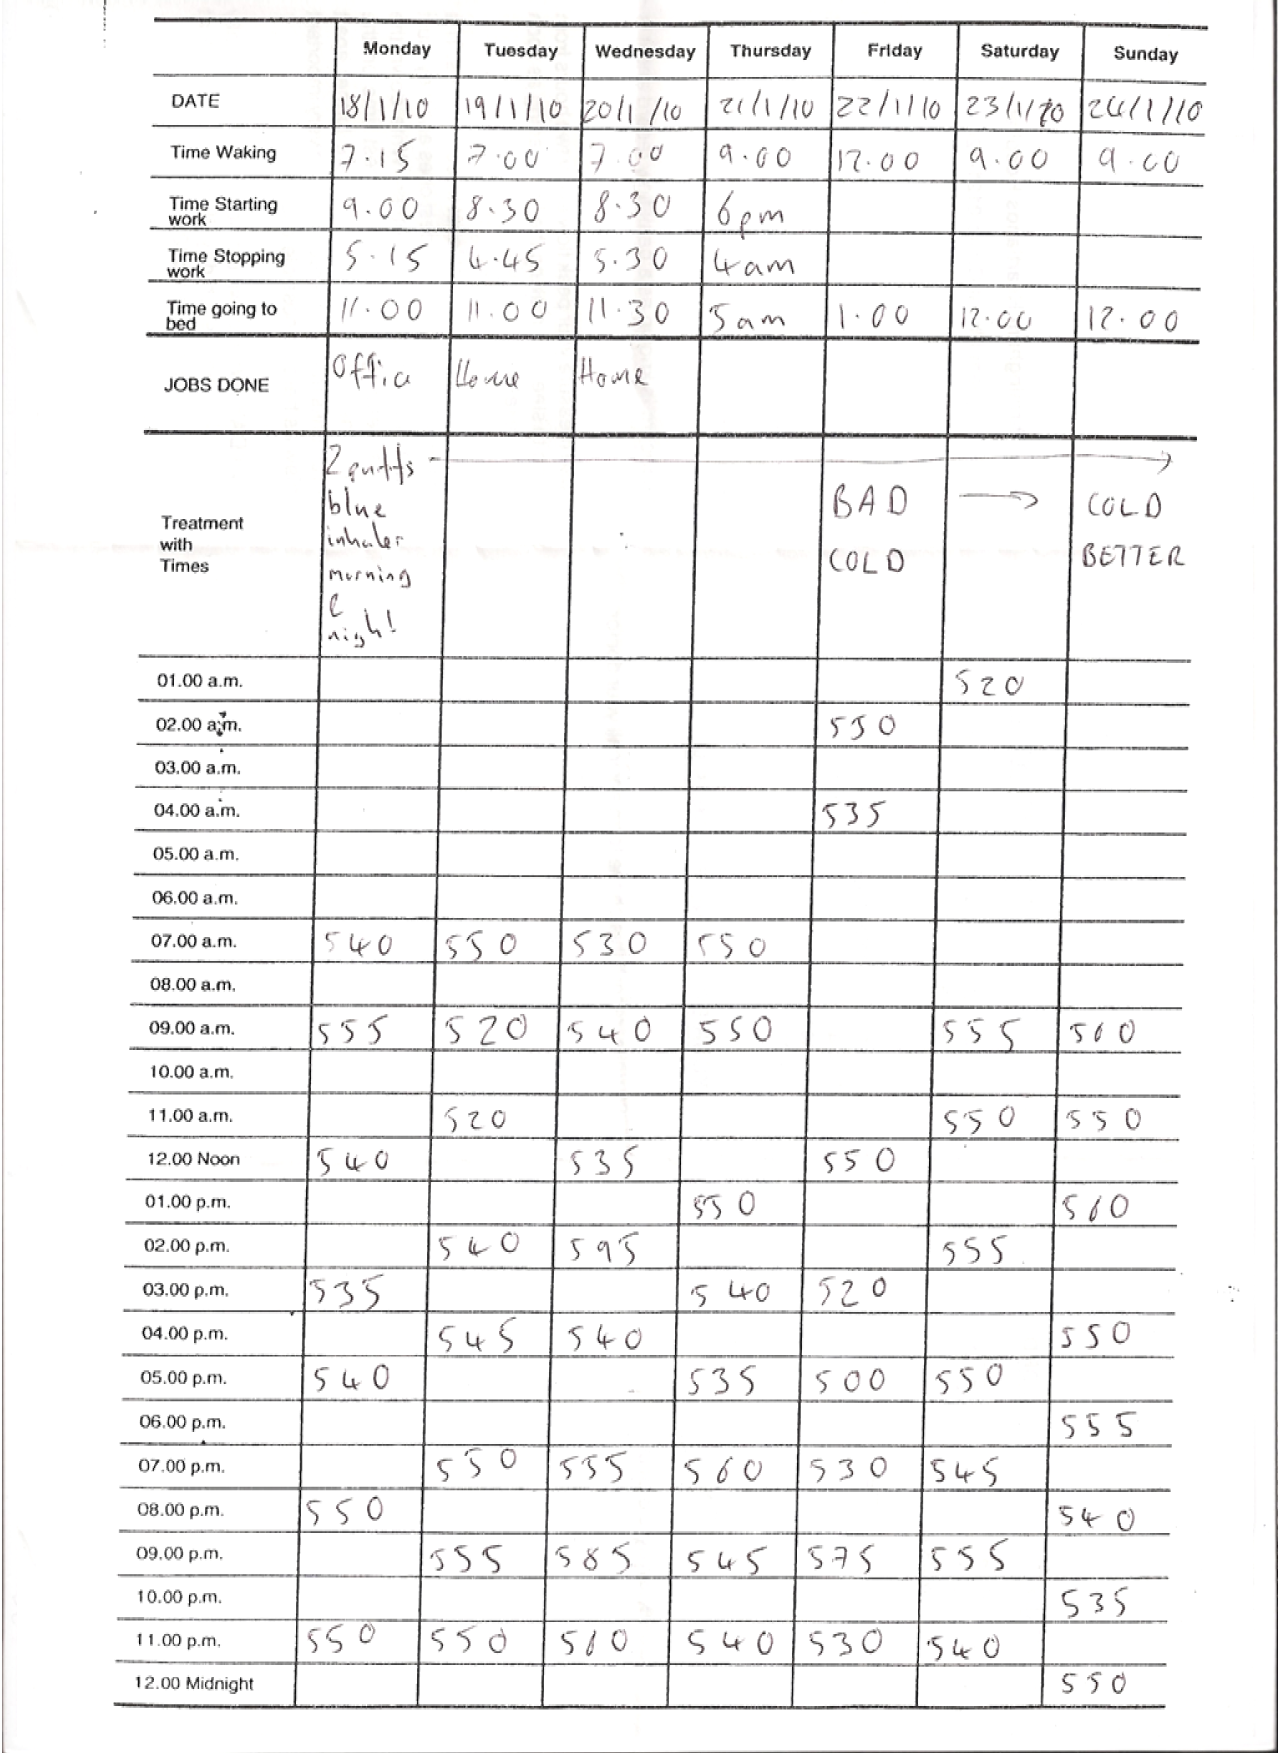 Monday Tuesday Wednesday Thursday Friday Saturday Sunday
DATE 18/1/10 19/1/10 20/1/10 21/1/10 22/1/10 23/1/10 24/1/10
Time Waking 7.15 7.00 7.00 9.00 12.00 9.00 9.00
Time Starting work 9.00 8.30 8.30 6pm
Time Stopping work 5.15 4.45 5.30 4am
Time going to bed 11.00 11.00 11.30 5am 1.00 12.00 12.00
JOBS DONE Office Home Home
Treatment with Times 2 puffs blue inhaler morning & night! BAD COLD → COLD BETTER
01.00 a.m. 520
02.00 a.m. 550
03.00 a.m.
04.00 a.m. 535
05.00 a.m.
06.00 a.m.
07.00 a.m. 540 550 530 550
08.00 a.m.
09.00 a.m. 555 520 540 550 555 560
10.00 a.m.
11.00 a.m. 520 550 550
12.00 Noon 540 535 550
01.00 p.m. 550 560
02.00 p.m. 540 595 555
03.00 p.m. 535 540 520
04.00 p.m. 545 540 550
05.00 p.m. 540 535 500 550
06.00 p.m. 555
07.00 p.m. 550 555 560 530 545
08.00 p.m. 550 540
09.00 p.m. 555 585 545 575 555
10.00 p.m. 535
11.00 p.m. 550 550 560 540 530 540
12.00 Midnight 550